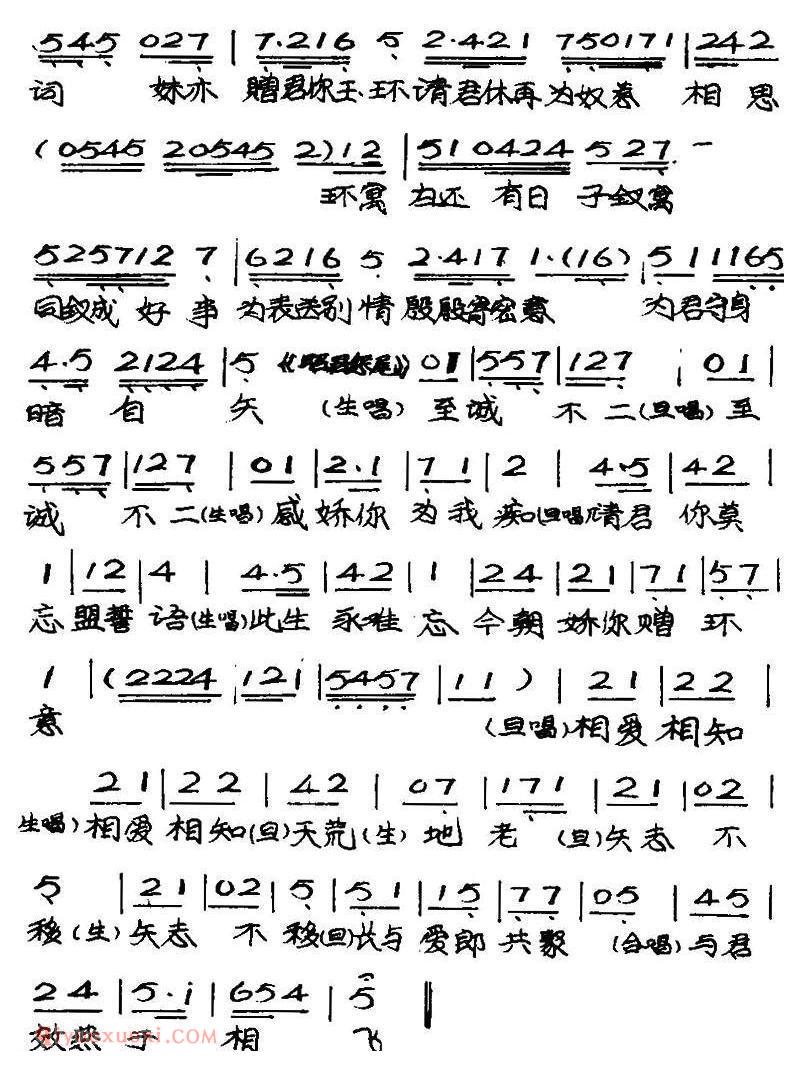 545 027 | 7·216 5 2·421 750171 | 242
词 妹亦 赠君你玉环请君休再为奴惹 相思
(0545 20545 2) 12 | 510424 527 -
环寓 白还 有日 子钗寓
525712 7 | 6216 5 2·417 1·(16) 5 1 1165
同钗成 好 事 为表送别 情 殷殷寄密意 为君守身
4·5 2124 | 5 01 | 557 | 127 | 01 |
暗 自 矢 (生唱) 至诚 不二(旦唱)至
557 | 127 | 01 | 2·1 | 71 | 2 | 4·5 | 42 |
诚 不二(生唱)感娇你 为我痴(旦唱)请君 你莫
1 | 12 | 4 | 4·5 | 42 | 1 | 24 | 21 | 71 | 57 |
忘盟誓语(生唱)此生 永难忘今朝娇你赠环
1 | (2224 121 | 5457 | 11 ) | 21 | 22 |
意 (旦唱)相爱相知
21 | 22 | 42 | 07 | 171 | 21 | 02 |
生唱)相爱相知(旦)天荒(生)地老 (旦)矢志不
5 | 21 | 02 | 5 | 51 | 15 | 77 | 05 | 45 |
移(生)矢志 不 移(旦)长与爱郎共聚 (合唱)与君
24 | 5·i | 654 | 5 ‖
效燕于 相 飞